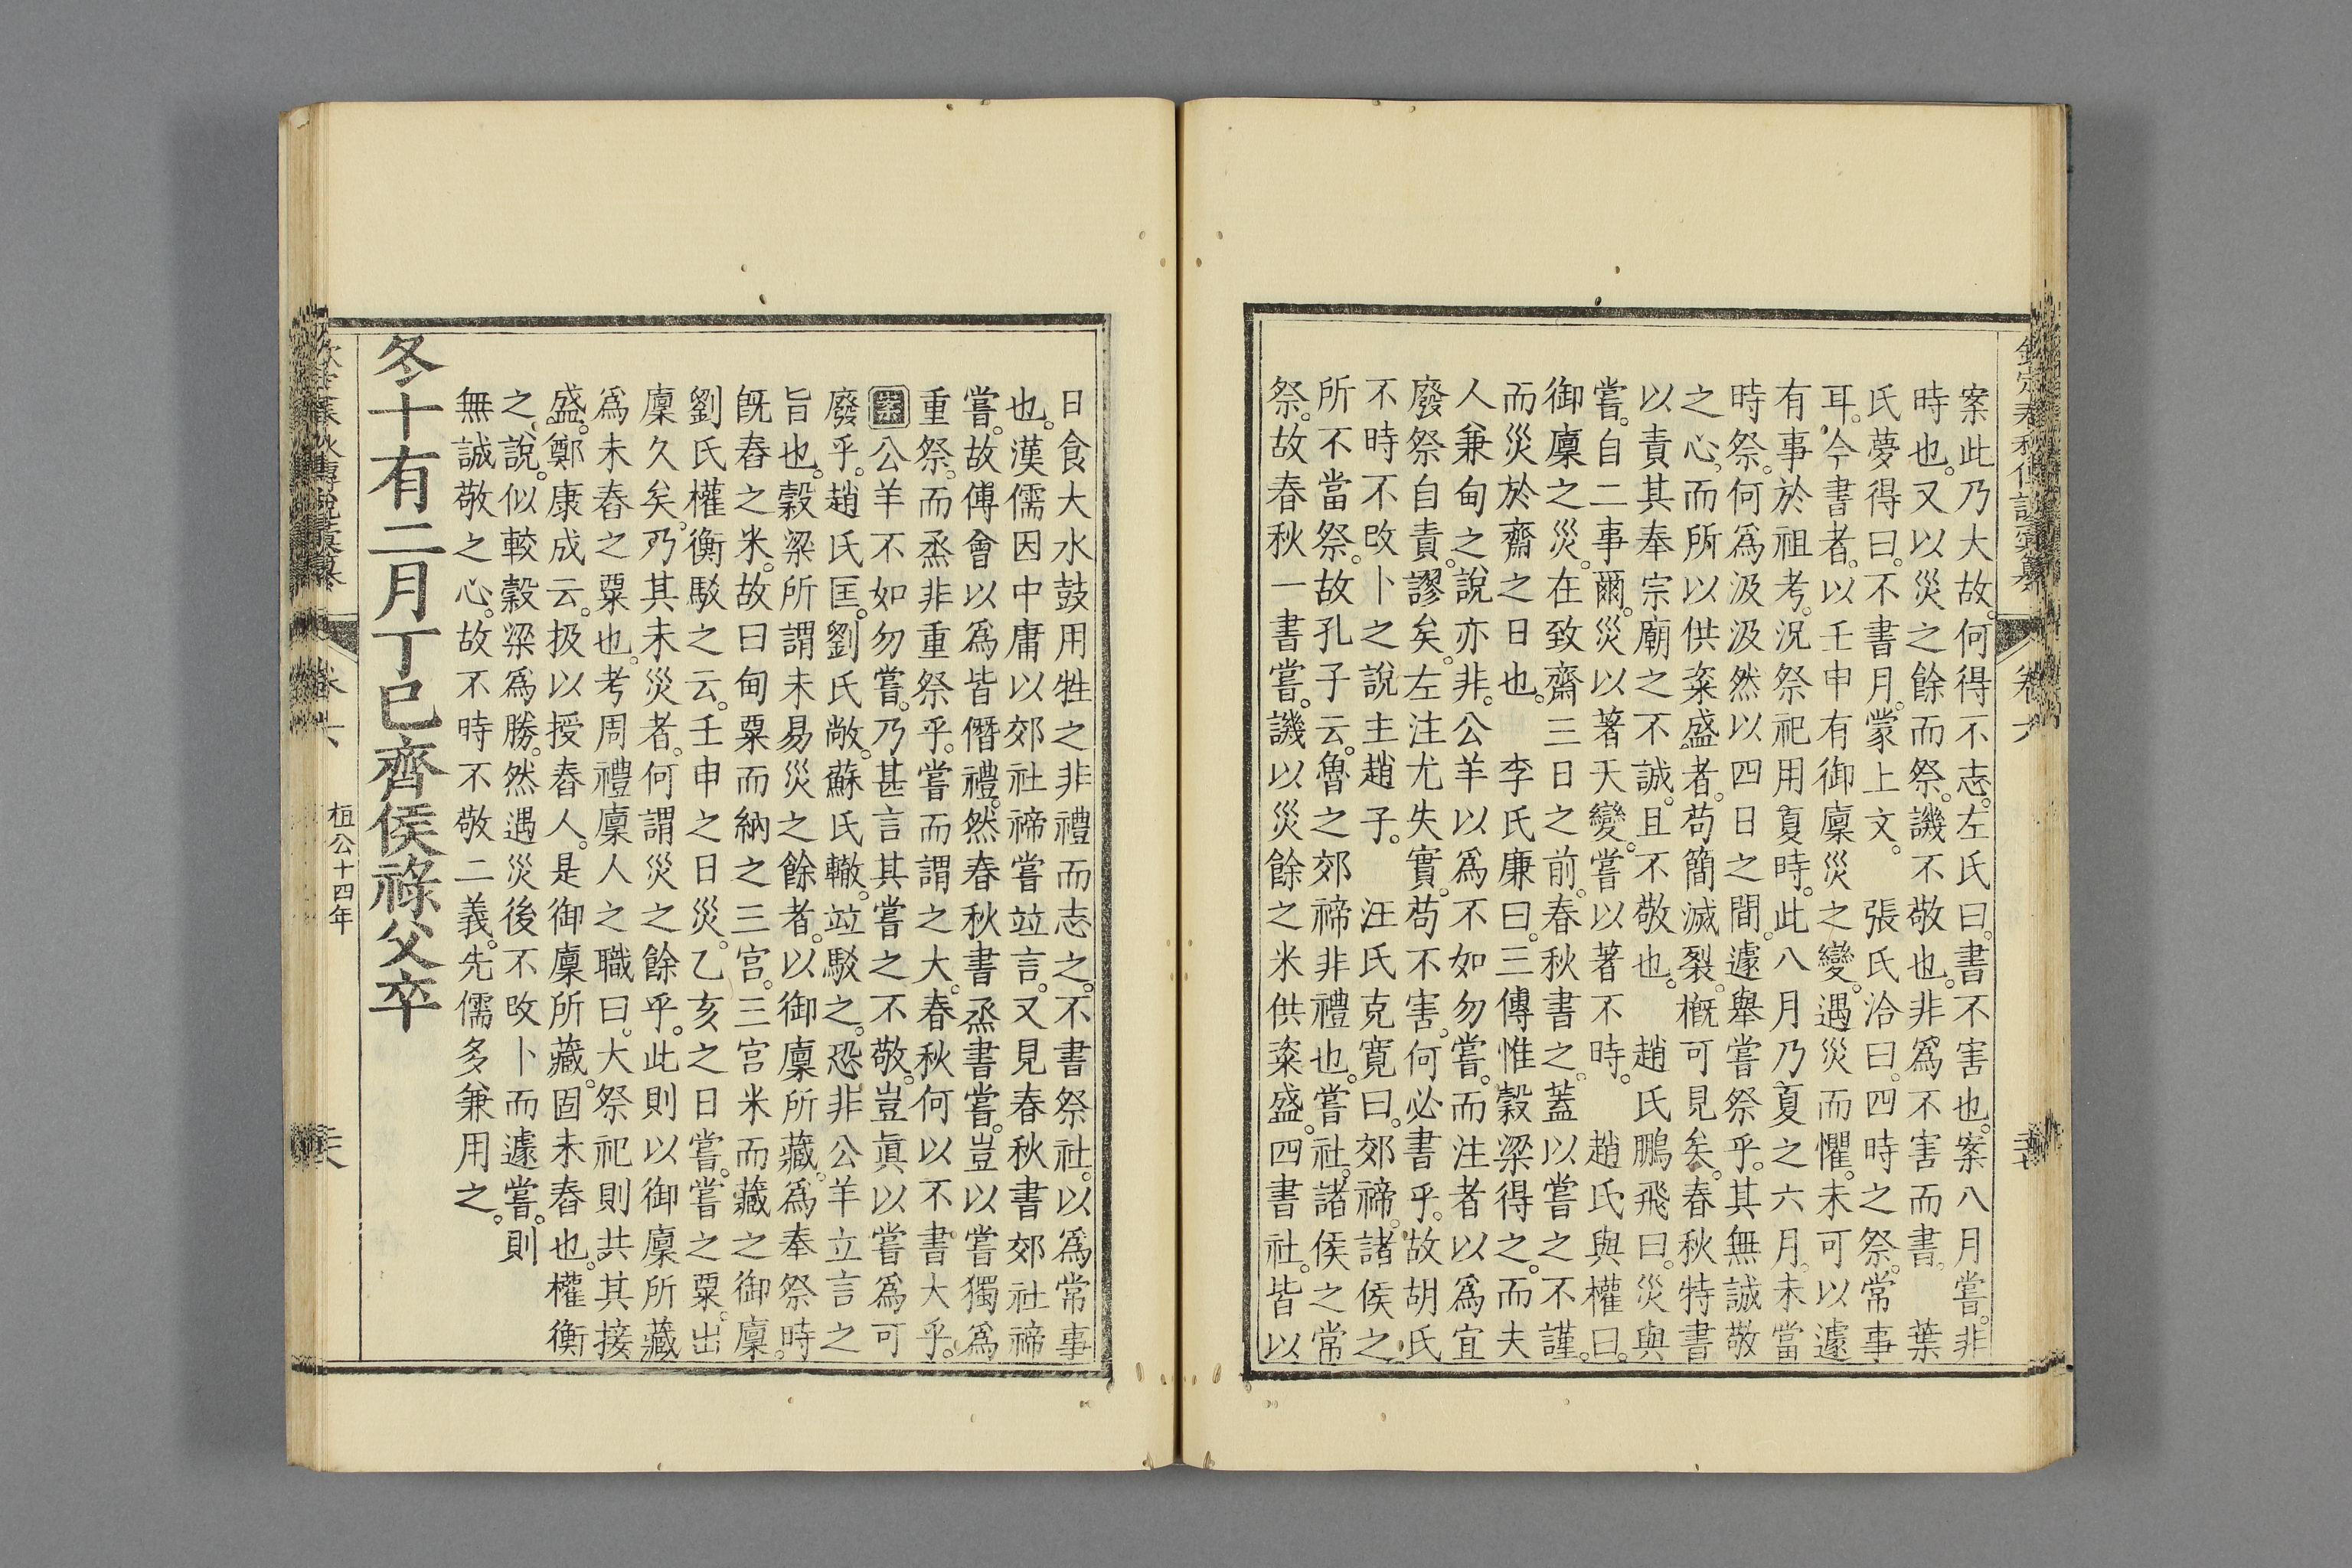 欽定春秋傳說彙纂 卷六
案此乃大故。何得不志。左氏曰。書不害也。案八月嘗。非
時也。又以災之餘而祭。譏不敬也。非爲不害而書。 葉
氏夢得曰。不書月。蒙上文。 張氏洽曰。四時之祭。常事
耳。今書者。以壬申有御廩災之變。遇災而懼。未可以遽
有事於祖考。況祭祀用夏時。此八月乃夏之六月。未當
時祭。何爲汲汲然以四日之間。遽舉嘗祭乎。其無誠敬
之心。而所以供粢盛者。苟簡滅裂。槪可見矣。春秋特書
以責其奉宗廟之不誠。且不敬也。 趙氏鵬飛曰。災與
嘗。自二事爾。災以著天變。嘗以著不時。 趙氏與權曰。
御廩之災。在致齋三日之前。春秋書之。蓋以嘗之不謹。
而災於齋之日也。 李氏廉曰。三傳惟穀梁得之。而夫
人兼甸之說亦非。公羊以爲不如勿嘗。而注者以爲宜
廢祭自責。謬矣。左注尤失實。苟不害。何必書乎。故胡氏
不時不改卜之說主趙子。 汪氏克寬曰。郊禘。諸侯之
所不當祭。故孔子云。魯之郊禘非禮也。嘗社。諸侯之常
祭。故春秋一書嘗。譏以災餘之米供粢盛。四書社。皆以
日食大水鼓用牲之非禮而志之。不書祭社。以爲常事
也。漢儒因中庸以郊社禘嘗竝言。又見春秋書郊社禘
嘗。故傅會以爲皆僭禮。然春秋書烝書嘗。豈以嘗獨爲
重祭。而烝非重祭乎。嘗而謂之大。春秋何以不書大乎。
案公羊不如勿嘗。乃甚言其嘗之不敬。豈眞以嘗爲可
廢乎。趙氏匡。劉氏敞。蘇氏轍。竝駁之。恐非公羊立言之
旨也。穀梁所謂未易災之餘者。以御廩所藏。爲奉祭時
旣舂之米。故曰甸粟而納之三宮。三宮米而藏之御廩。
劉氏權衡駁之云。壬申之日災。乙亥之日嘗。嘗之粟。出
廩久矣。乃其未災者。何謂災之餘乎。此則以御廩所藏
爲未舂之粟也。考周禮廩人之職曰。大祭祀則共其接
盛。鄭康成云。扱以授舂人。是御廩所藏。固未舂也。權衡
之說。似較穀梁爲勝。然遇災後不改卜而遽嘗。則
無誠敬之心。故不時不敬二義。先儒多兼用之。
冬十有二月丁巳齊侯祿父卒
桓公十四年